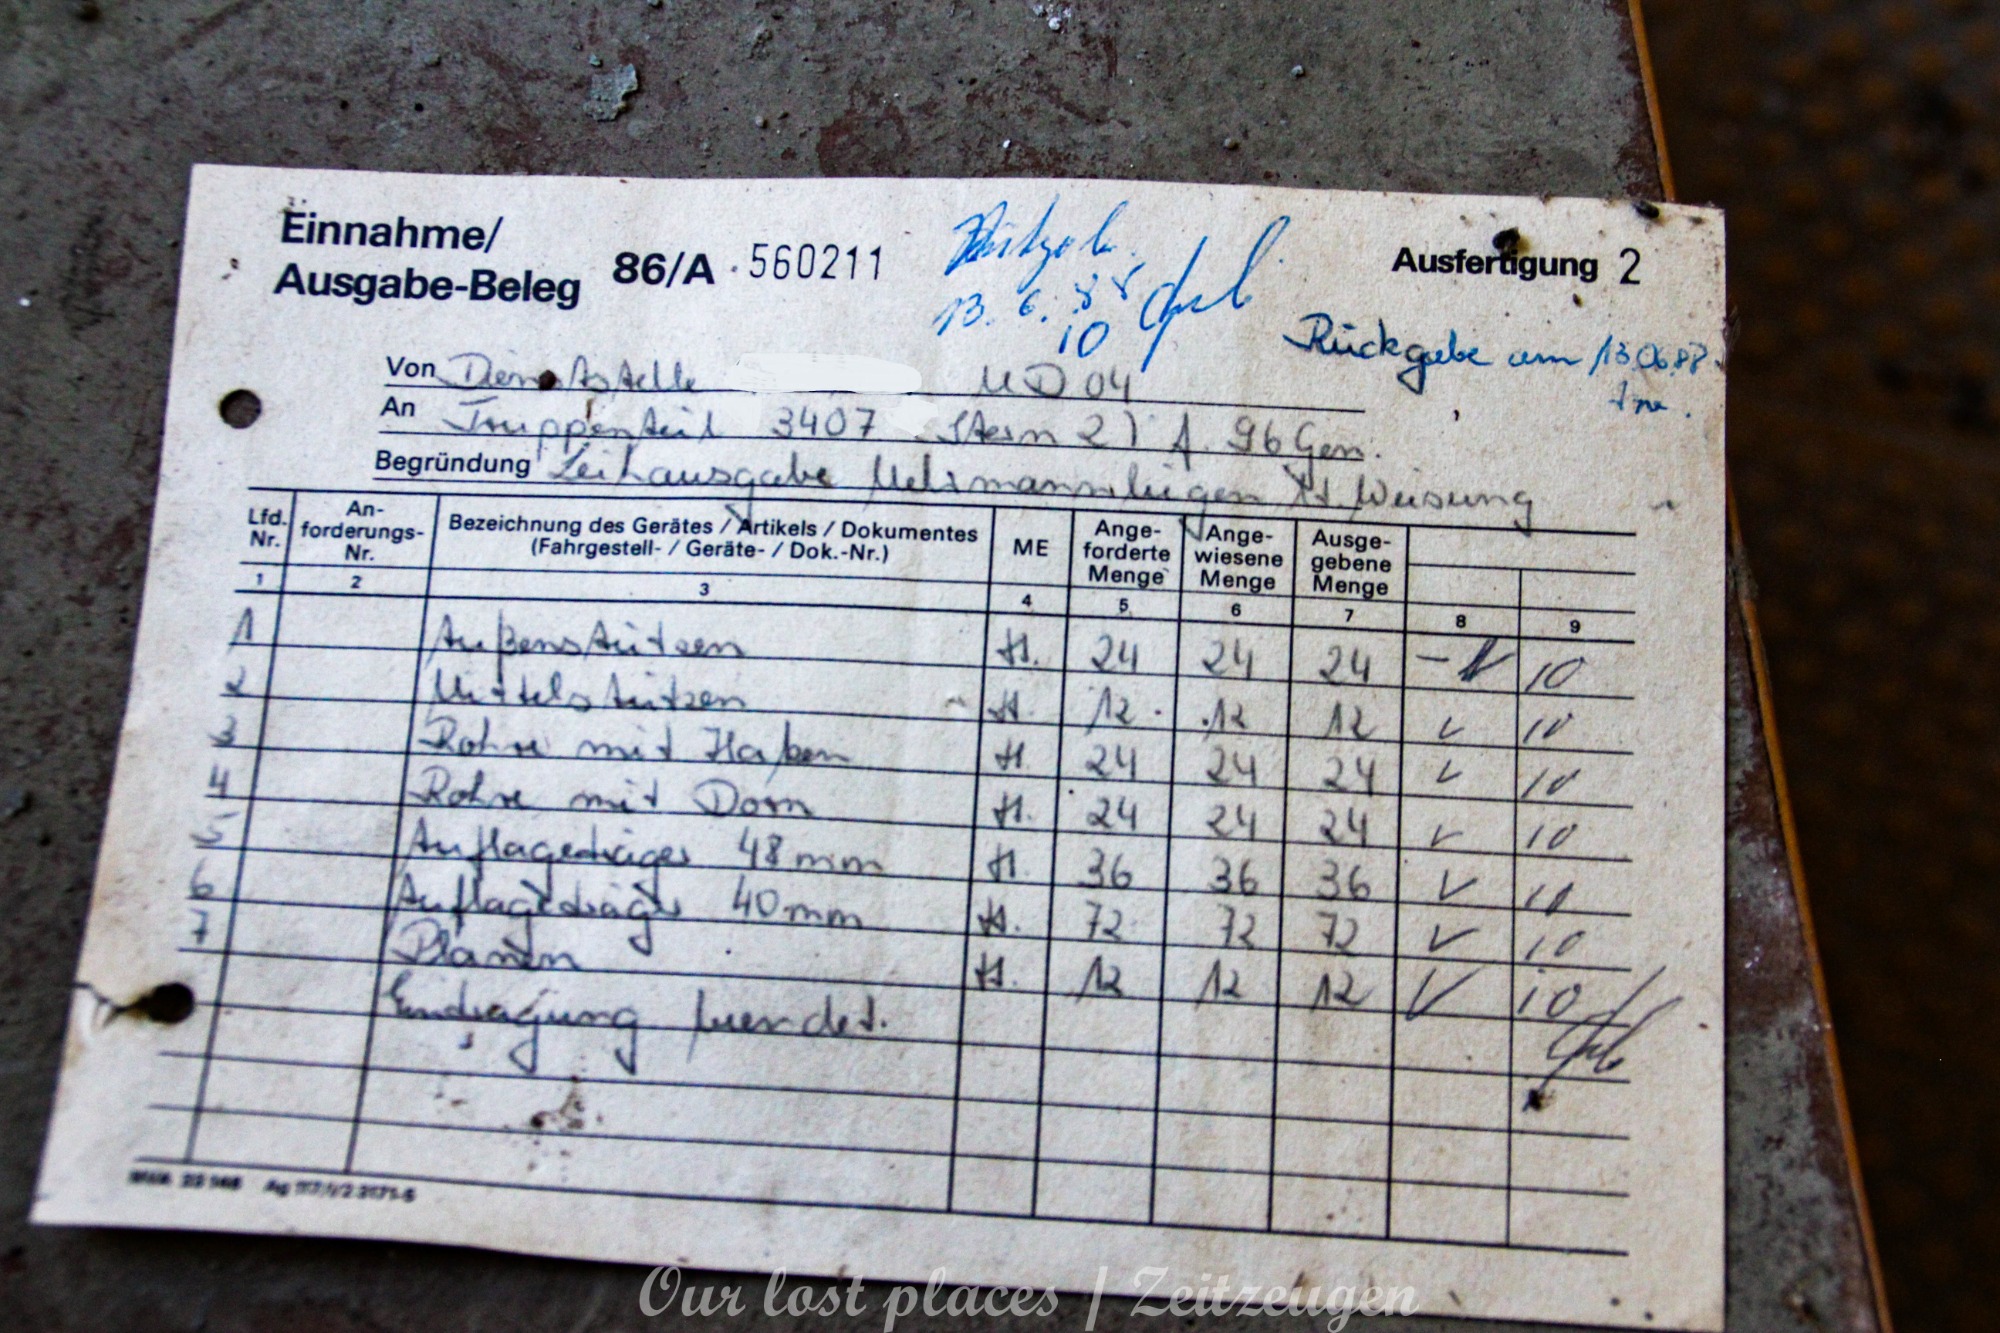 Einnahme/
Ausgabe-Beleg
86/A 560211
13. 6. 88
10
Ausfertigung 2
Rückgabe am 13.06.88
Von Dienststelle MD 04
An Truppenteil 3407 (Stern 2)
Begründung Leihausgabe lt. Weisung
Lfd. Nr. An-forderungs-Nr. Bezeichnung des Gerätes / Artikels / Dokumentes (Fahrgestell- / Geräte- / Dok.-Nr.) ME Ange-forderte Menge Ange-wiesene Menge Ausge-gebene Menge
1 2 3 4 5 6 7 8 9
1 Außenstützen St. 24 24 24 - 10
2 Mittelstützen St. 12 12 12 10
3 Rohre mit Haken St. 24 24 24 10
4 Rohre mit Dorn St. 24 24 24 10
5 Auflageträger 48 mm St. 36 36 36 10
6 Auflageträger 40 mm St. 72 72 72 10
7 Planen St. 12 12 12 10
Eintragung beendet.
Our lost places | Zeitzeugen